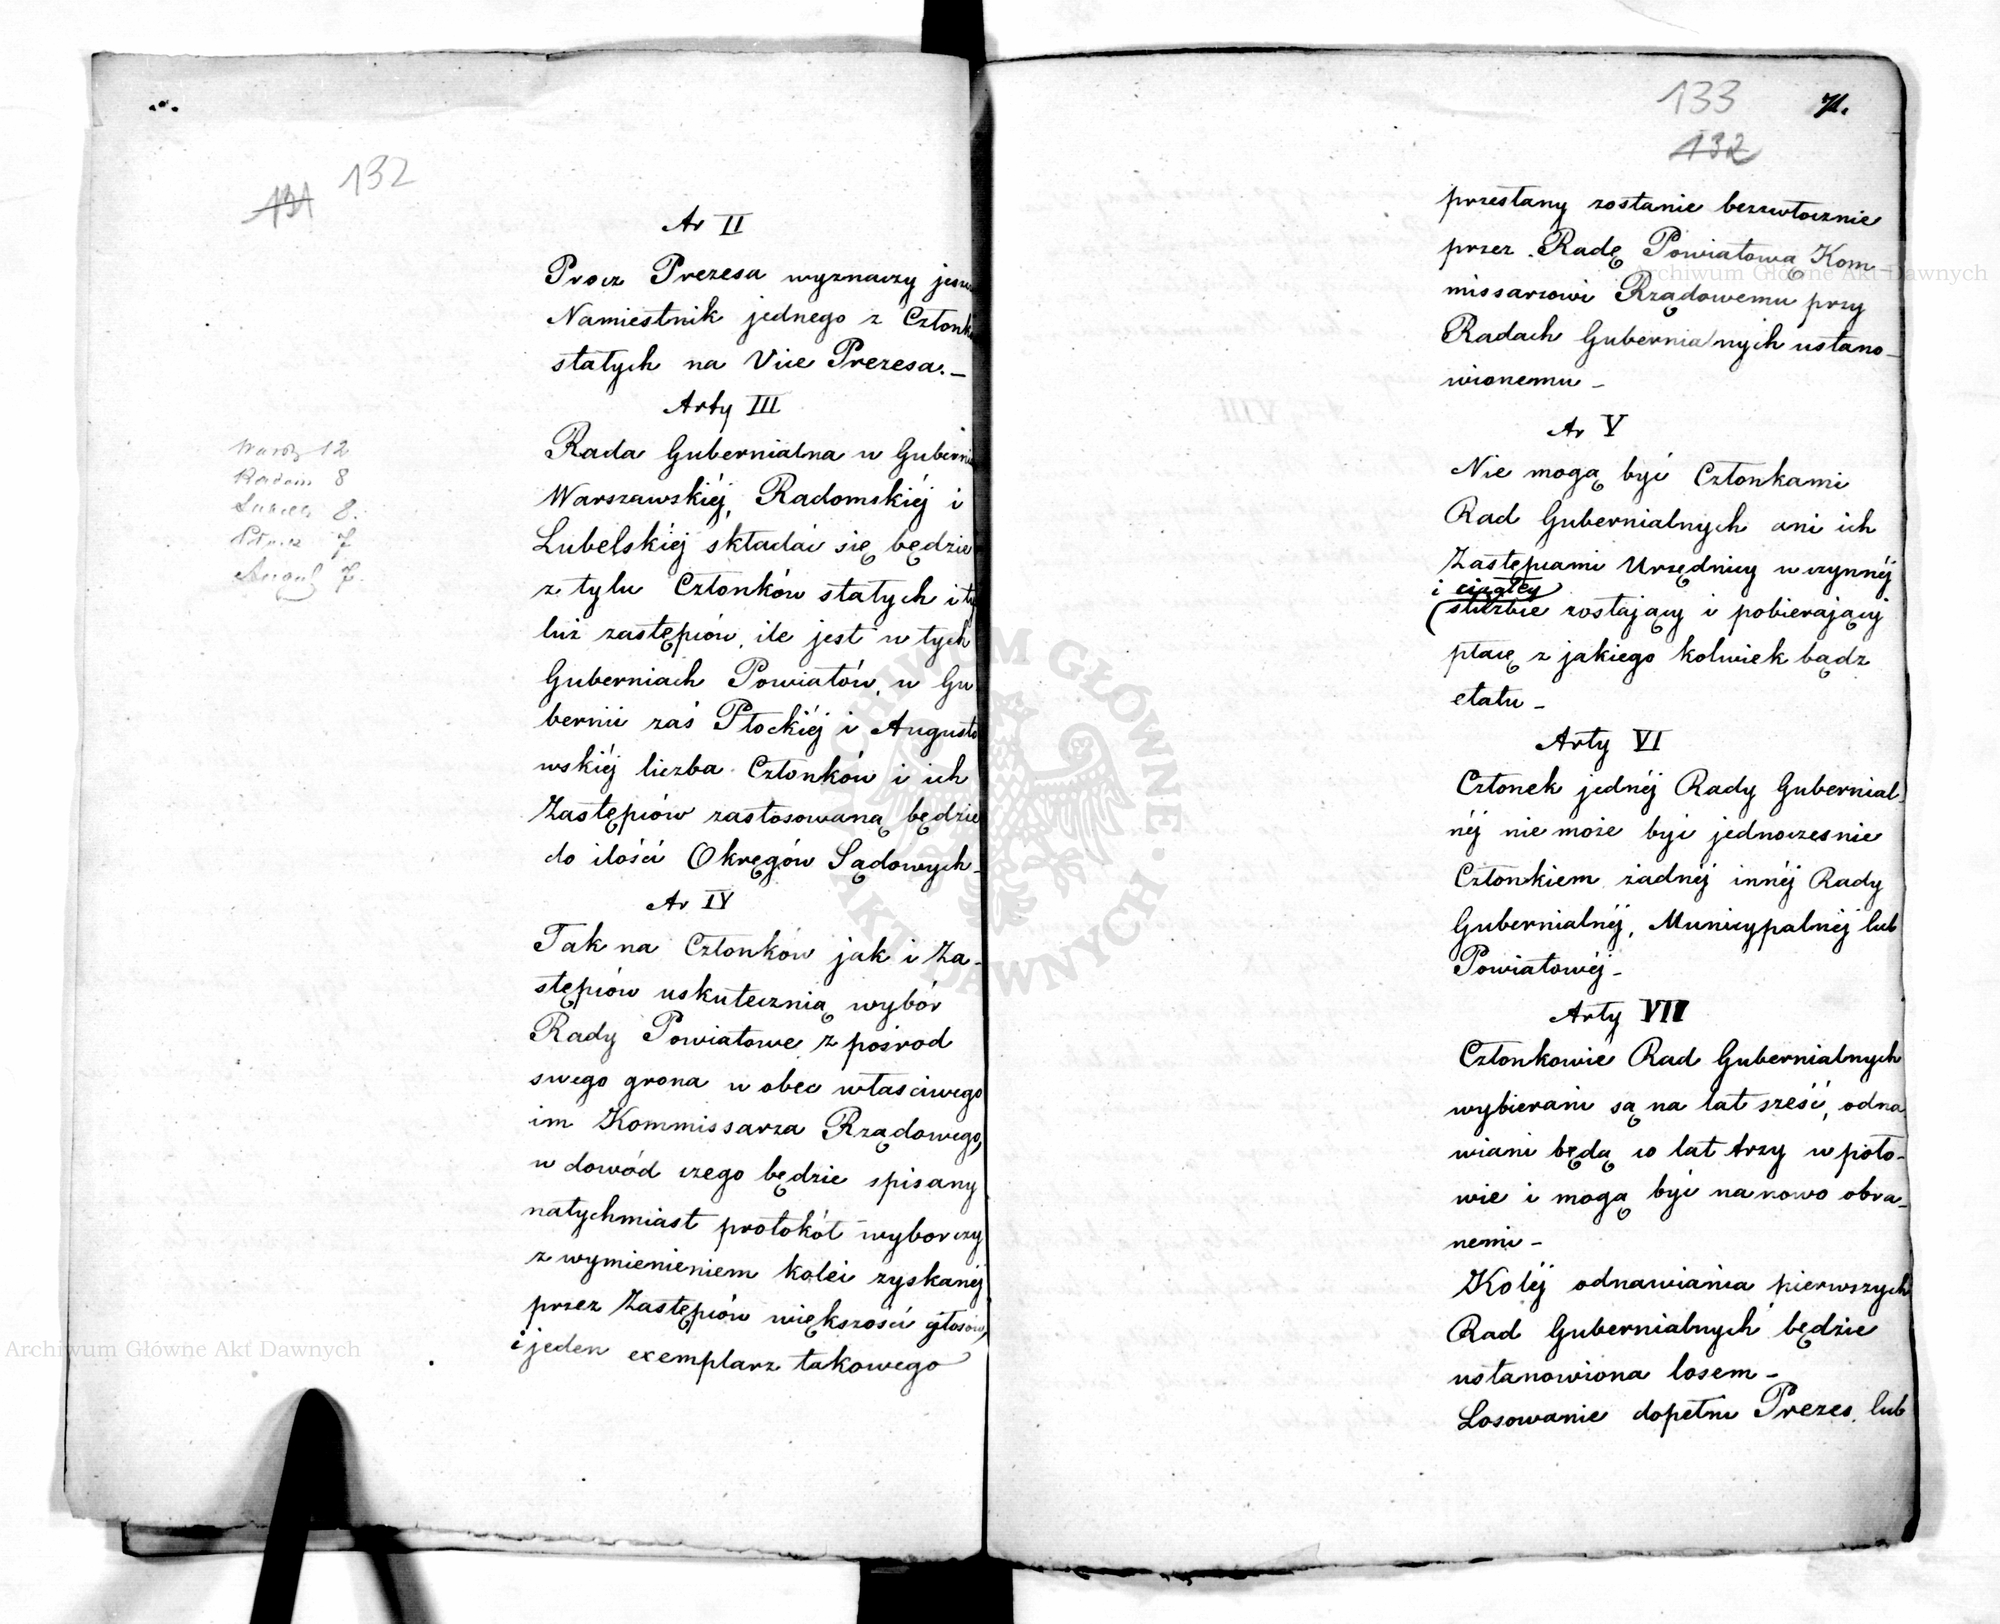 132
131
Ar II
Procz Prezesa wyznaczy jeszcze
Namiestnik jednego z Członk
stałych na Vice Prezesa.—
Arty III
Rada Gubernialna w Guberni
Warszawskiéj, Radomskiéj i
Lubelskiéj składać się będzie
z tylu Członków stałych i ty
luż zastępców, ile jest w tych
Guberniach Powiatów, w Gu
bernii zaś Płockiéj i Augusto
wskiéj liczba Członków i ich
Zastępców zastosowaną będzie
do ilości Okręgów Sądowych—
Ar IV
Tak na Członków jak i Za-
stępców uskutecznią wybór
Rady Powiatowe z pośrod
swego grona w obec własciwego
im Kommissarza Rządowego,
w dowód czego będzie spisany
natychmiast protokół wyborczy
z wymienieniem kolei zyskanéj
przez Zastępców większości głosów,
i jeden exemplarz takowego
Warsz 12
Radom 8
Lubels 8.
Płock 7
August 7.
133
71.
132
przesłany zostanie bezzwłocznie
przez Radę Powiatową Kom
missarzowi Rządowemu przy
Radach Gubernialnych ustano-
wionemu—
Ar V
Nie mogą być Członkami
Rad Gubernialnych ani ich
Zastępcami Urzędnicy w czynnéj
i ciągłey
służbie zostający i pobierający
płacę z jakiego kolwiek bądz
etatu—
Arty VI
Członek jednéj Rady Gubernial
néj nie może być jednoczesnie
Członkiem żadnéj innéj Rady
Gubernialnéj, Municypalnéj lub
Powiatowéj—
Arty VII
Członkowie Rad Gubernialnych
wybierani są na lat sześć, odna
wiani będą co lat trzy w poło-
wie i mogą być na nowo obra-
nemi—
Koléj odnawiania pierwszych
Rad Gubernialnych będzie
ustanowiona losem—
Losowanie dopełni Prezes lub
Archiwum Główne Akt Dawnych
Archiwum Główne Akt Dawnych
ARCHIWUM GŁÓWNE AKT DAWNYCH